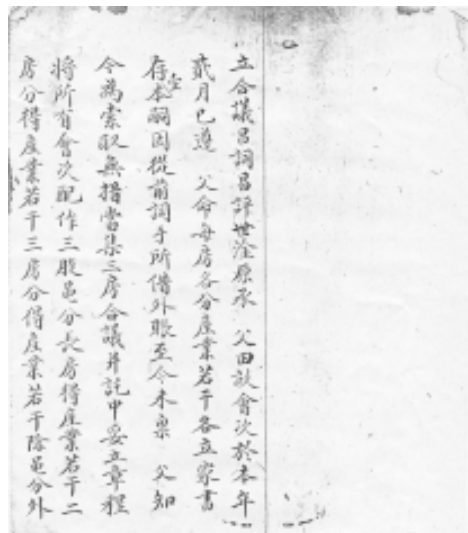 立合議昌詞昌評世淦原承 父田畝會次於本年
貳月已遵 父命每房各分產業若干各立家書
存本堂嗣因從前詞手所借外賬至今未稟 父知
今為索取無措當集三房合議并託中妥立章程
將所有會次配作三股品分長房得產業若干二
房分得產業若干三房分得產業若干除品分外